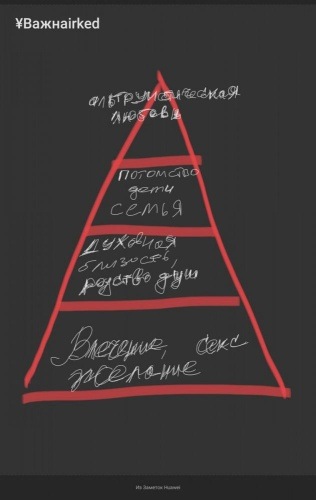 ¥Важнаirked
альтруистическая
любовь
потомство
дети
семья
духовная
близость,
родство душ
Влечение, секс
желание
Из Заметок Huawei